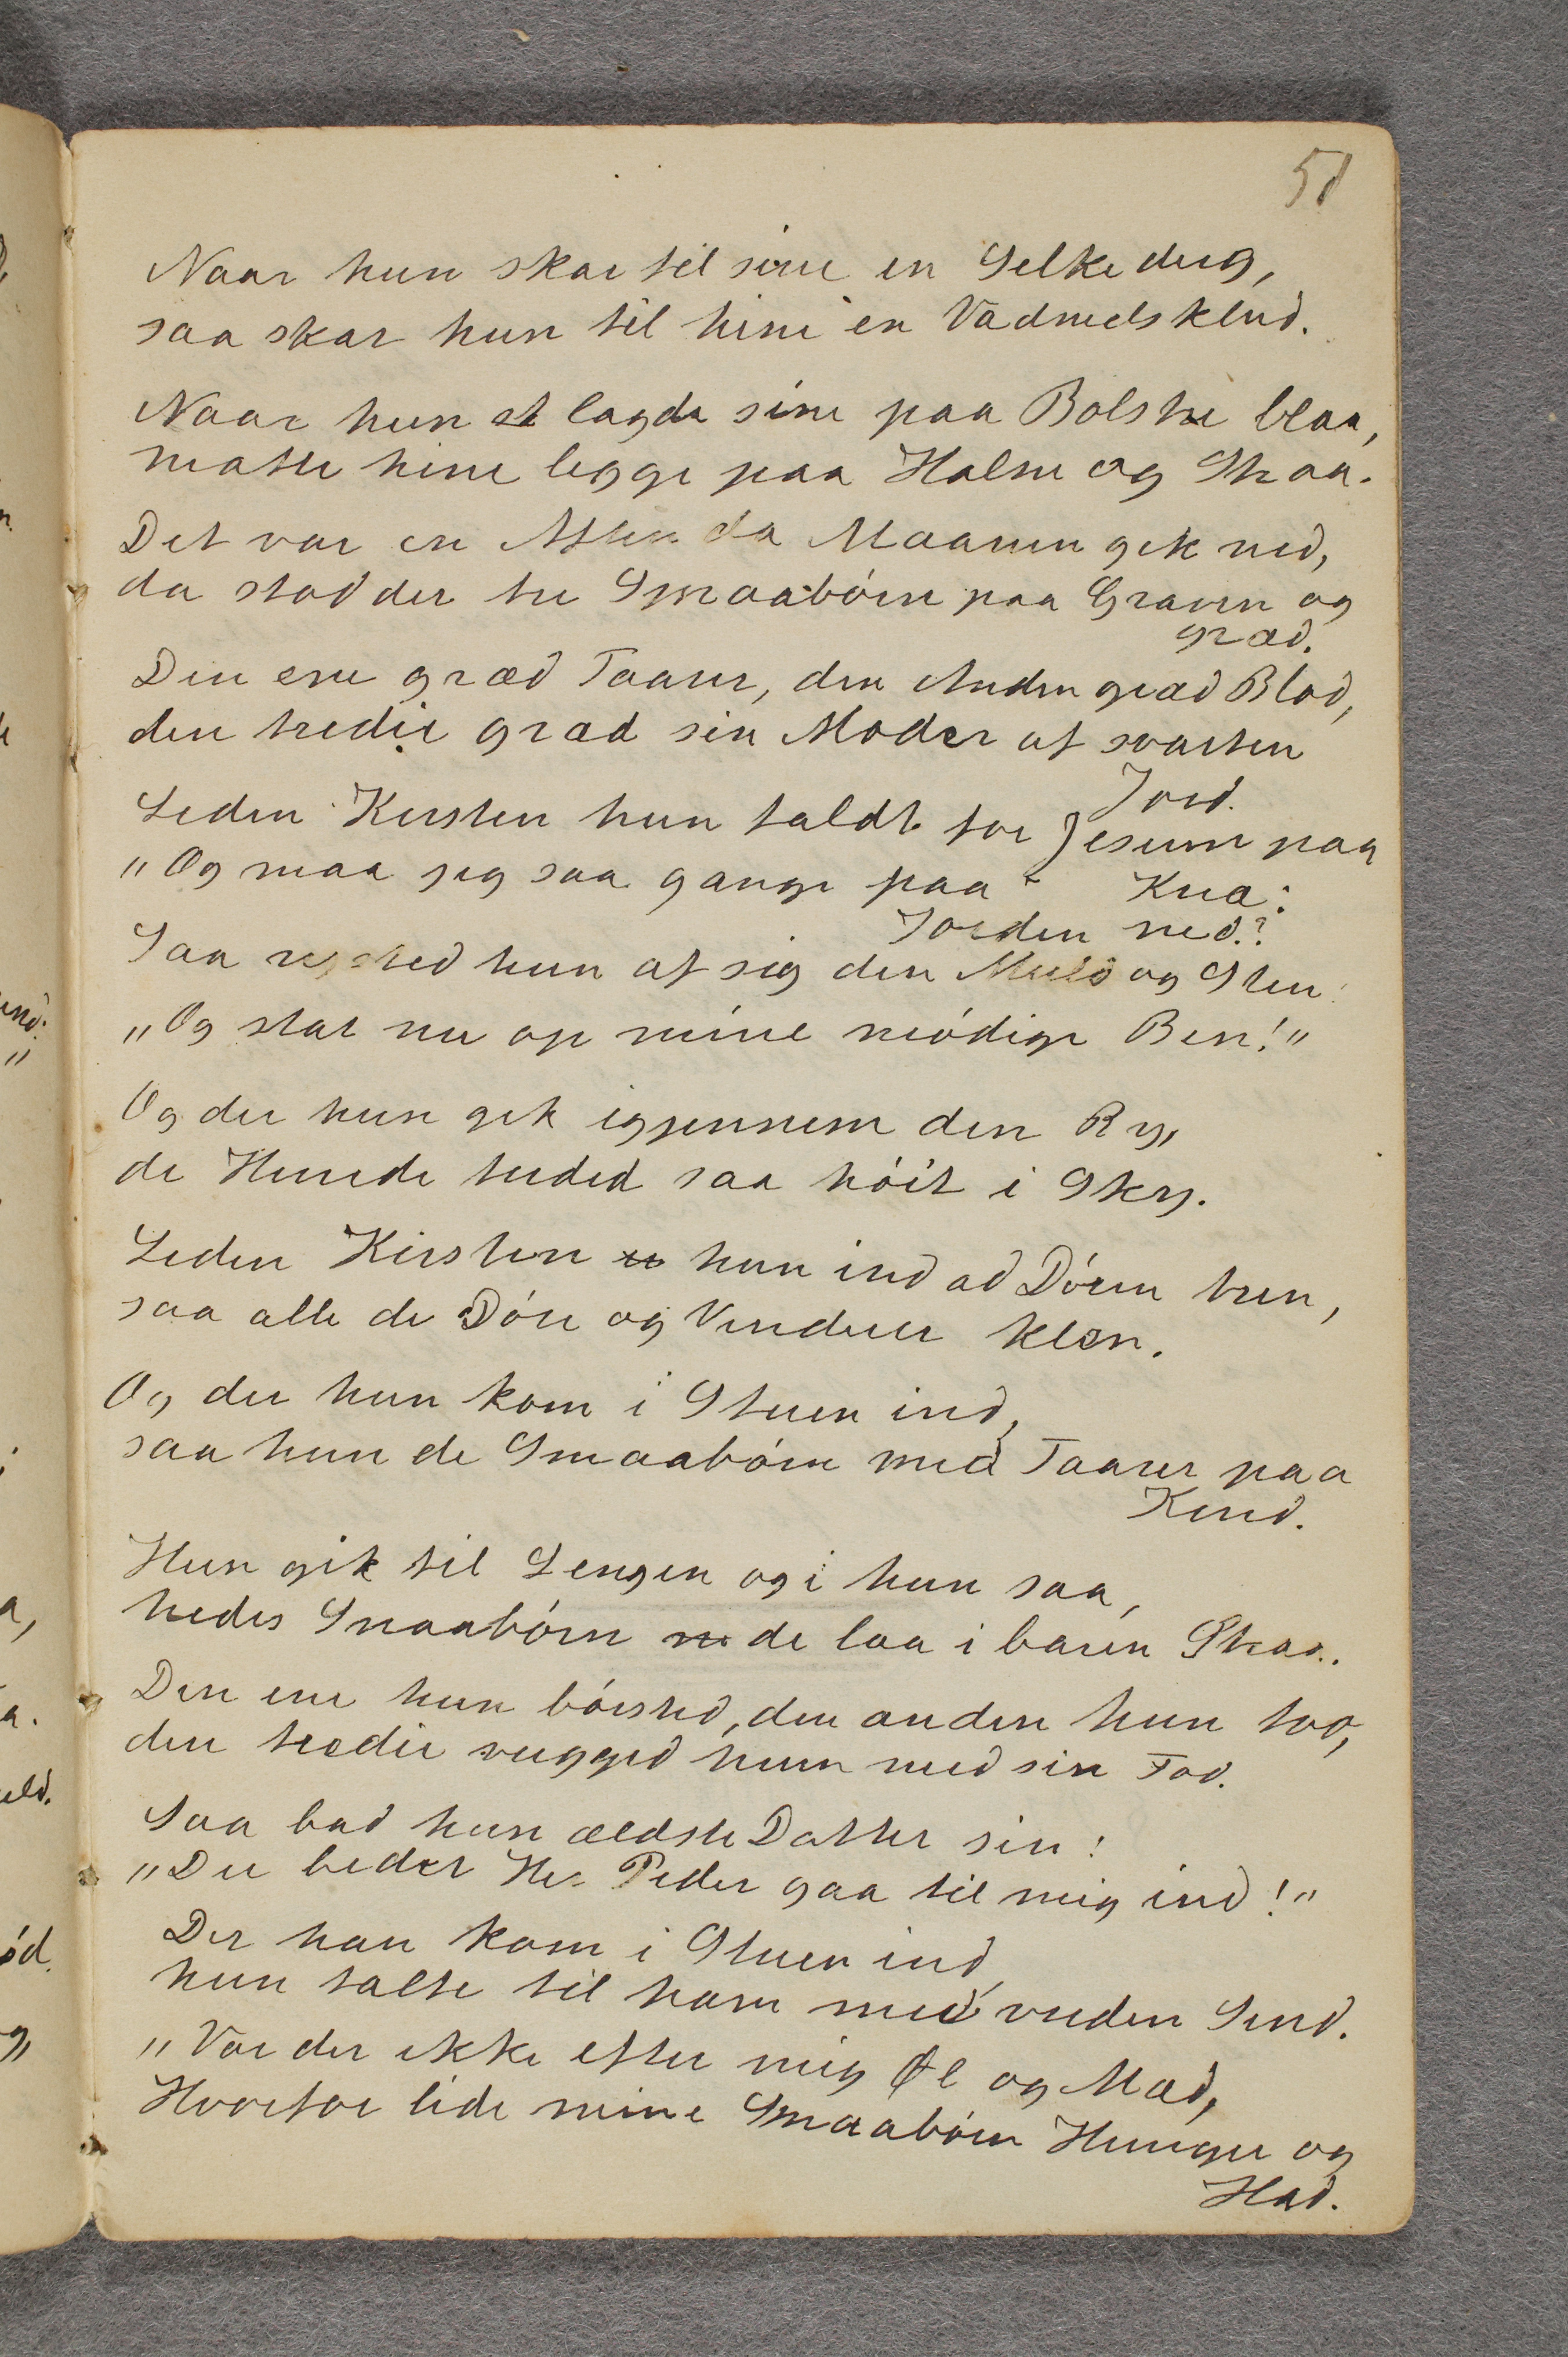 58
Naar hun skar til sine en Selkedug,
saa skar hun til hine en Vadmelsklud.
Naar hun et lagde sine paa Bolstre blaa,
matte hine legge paa Halm og Straa.
Det var en Atten da Maanen gek ned,
da stod der tre Smaabórn paa Graven og
græd.
Den ene græd Taarer, den Anden græd Blod,
den tredie græd sin Moder af svarten
Jord.
Leden Kirsten hun faldt for Jesum paa
Knæ:
"Og maa jeg saa gange paa
Jorden ned.?
Saa rysted hun af sig den Muld og Sten:
"Og stat nu op mine módige Ben!"
Og der hun gek igjennem den By,
de Hunde tuded saa hóit i Sky.
Leden Kirsten hun ind ad Dóren tren,
saa alle de Dóre og Venduer klen.
Og der hun kom i Stuen ind,
saa hun de Smaabórn med Taarer paa
Kind.
Hun gik til Sengen og i hun saa,
hedes Smaabórn de laa i baren Straa.
Den ene hun bórsted, den anden hun tvo,
den tredie vugged hun med sin Fod.
Saa bad hun ældste Datter sin:
"Du beder Her Peder gaa til mig ind!"
Der han kom i Stuen ind,
hun talte til ham med vreden Send.
"Var der ikke efter mig Øl og Mad,
Hvorfor lide mine Smaabórn Hunger og
Had.